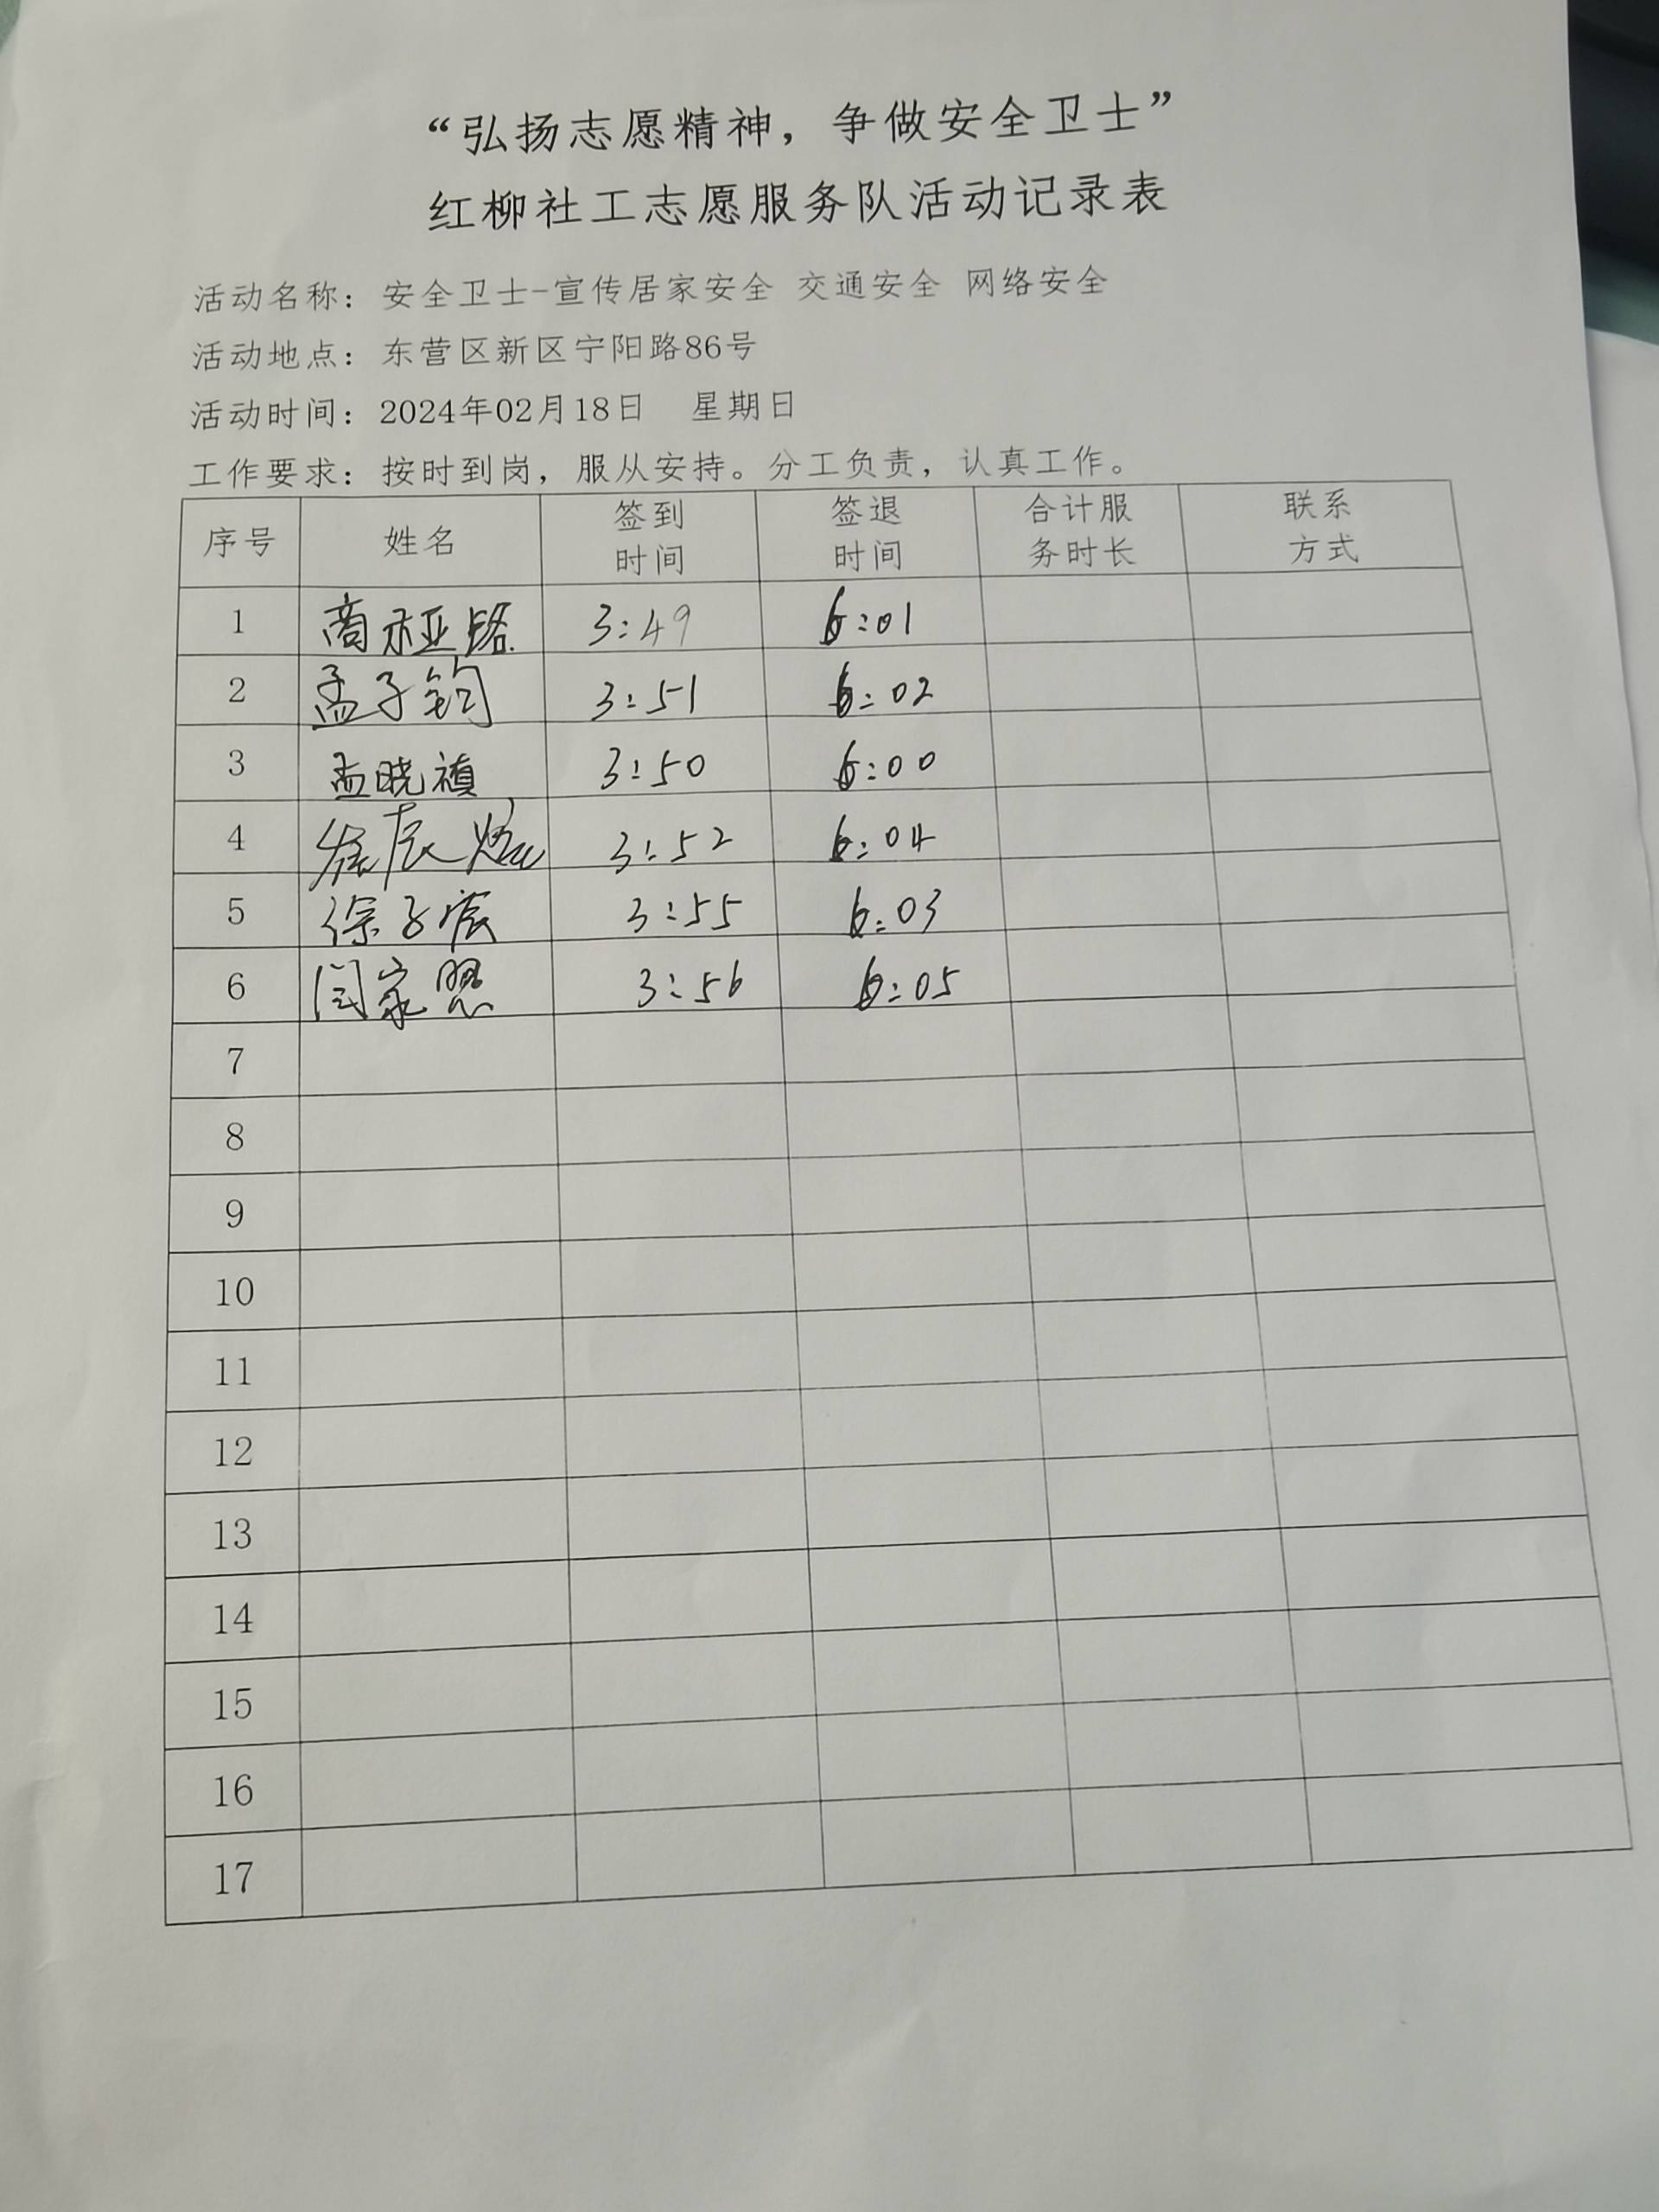 “弘扬志愿精神，争做安全卫士”
红柳社工志愿服务队活动记录表
活动名称：安全卫士-宣传居家安全 交通安全 网络安全
活动地点：东营区新区宁阳路86号
活动时间：2024年02月18日 星期日
工作要求：按时到岗，服从安持。分工负责，认真工作。
序号 姓名 签到时间 签退时间 合计服务时长 联系方式
1 商 亚铭 3:49 6:01
2 孟子钧 3:51 6:02
3 孟晓禛 3:50 6:00
4 辰 3:52 6:04
5 徐子宸 3:55 6:03
6 闫家 3:56 6:05
7
8
9
10
11
12
13
14
15
16
17